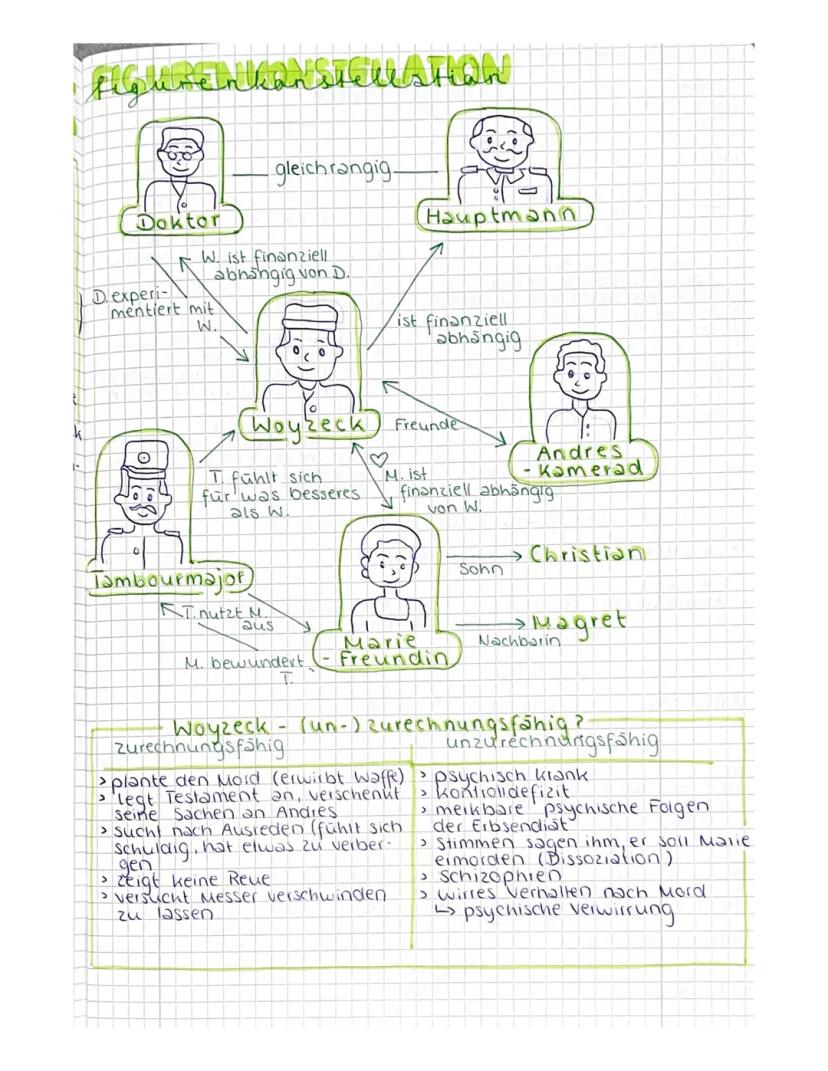 FIGURENKONSTELLATION
figurenkonstellation
gleichrangig
Doktor
Hauptmann
W. ist finanziell
abhängig von D.
D. experi-
mentiert mit
W.
ist finanziell
abhängig
Woyzeck
Freunde
Andres
- Kamerad
T. fühlt sich
für was besseres
als W.
M. ist
finanziell abhängig
von W.
Tambourmajor
Sohn
Christian
T. nutzt M.
aus
Nachbarin
Magret
Marie
- Freundin
M. bewundert
T.
Woyzeck - (un-) zurechnungsfähig?
zurechnungsfähig
> plante den Mord (erwirbt Waffe)
> legt Testament an, verschenkt
seine Sachen an Andres
> sucht nach Ausreden (fühlt sich
schuldig, hat etwas zu verber-
gen
> zeigt keine Reue
> versucht Messer verschwinden
zu lassen
unzurechnungsfähig
> psychisch krank
> Kontrolldefizit
> merkbare psychische Folgen
der Erbsendiät
> Stimmen sagen ihm, er soll Marie
ermorden (Dissoziation)
> schizophren
> wirres Verhalten nach Mord
↳ psychische Verwirrung